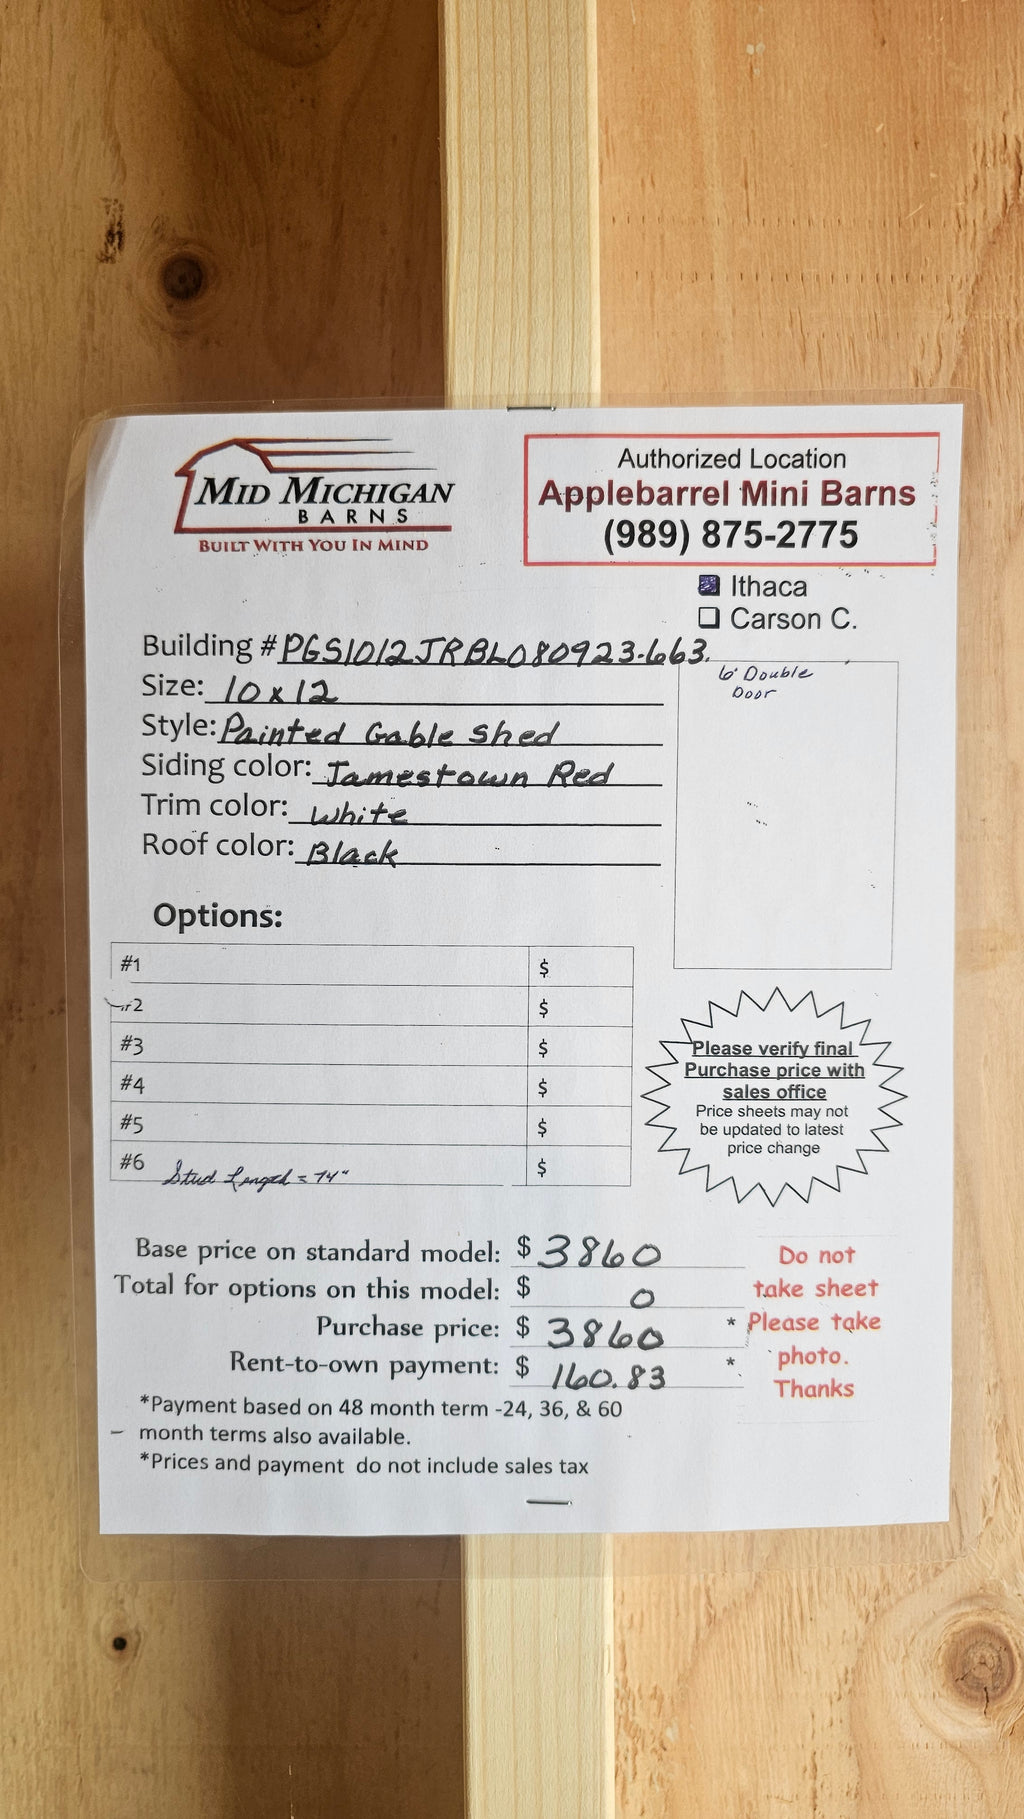 MID MICHIGAN
BARNS
BUILT WITH YOU IN MIND
Authorized Location
Applebarrel Mini Barns
(989) 875-2775
Ithaca
Carson C.
Building # PGS1012JRBL080923-663
Size: 10 x 12
Style: Painted Gable Shed
Siding color: Jamestown Red
Trim color: White
Roof color: Black
6' Double
Door
Options:
#1 $
#2 $
#3 $
#4 $
#5 $
#6 Stud Length = 74" $
Please verify final
Purchase price with
sales office
Price sheets may not
be updated to latest
price change
Base price on standard model: $ 3860
Total for options on this model: $ 0
Purchase price: $ 3860 *
Rent-to-own payment: $ 160.83 *
Do not
take sheet
Please take
photo.
Thanks
*Payment based on 48 month term -24, 36, & 60
month terms also available.
*Prices and payment do not include sales tax